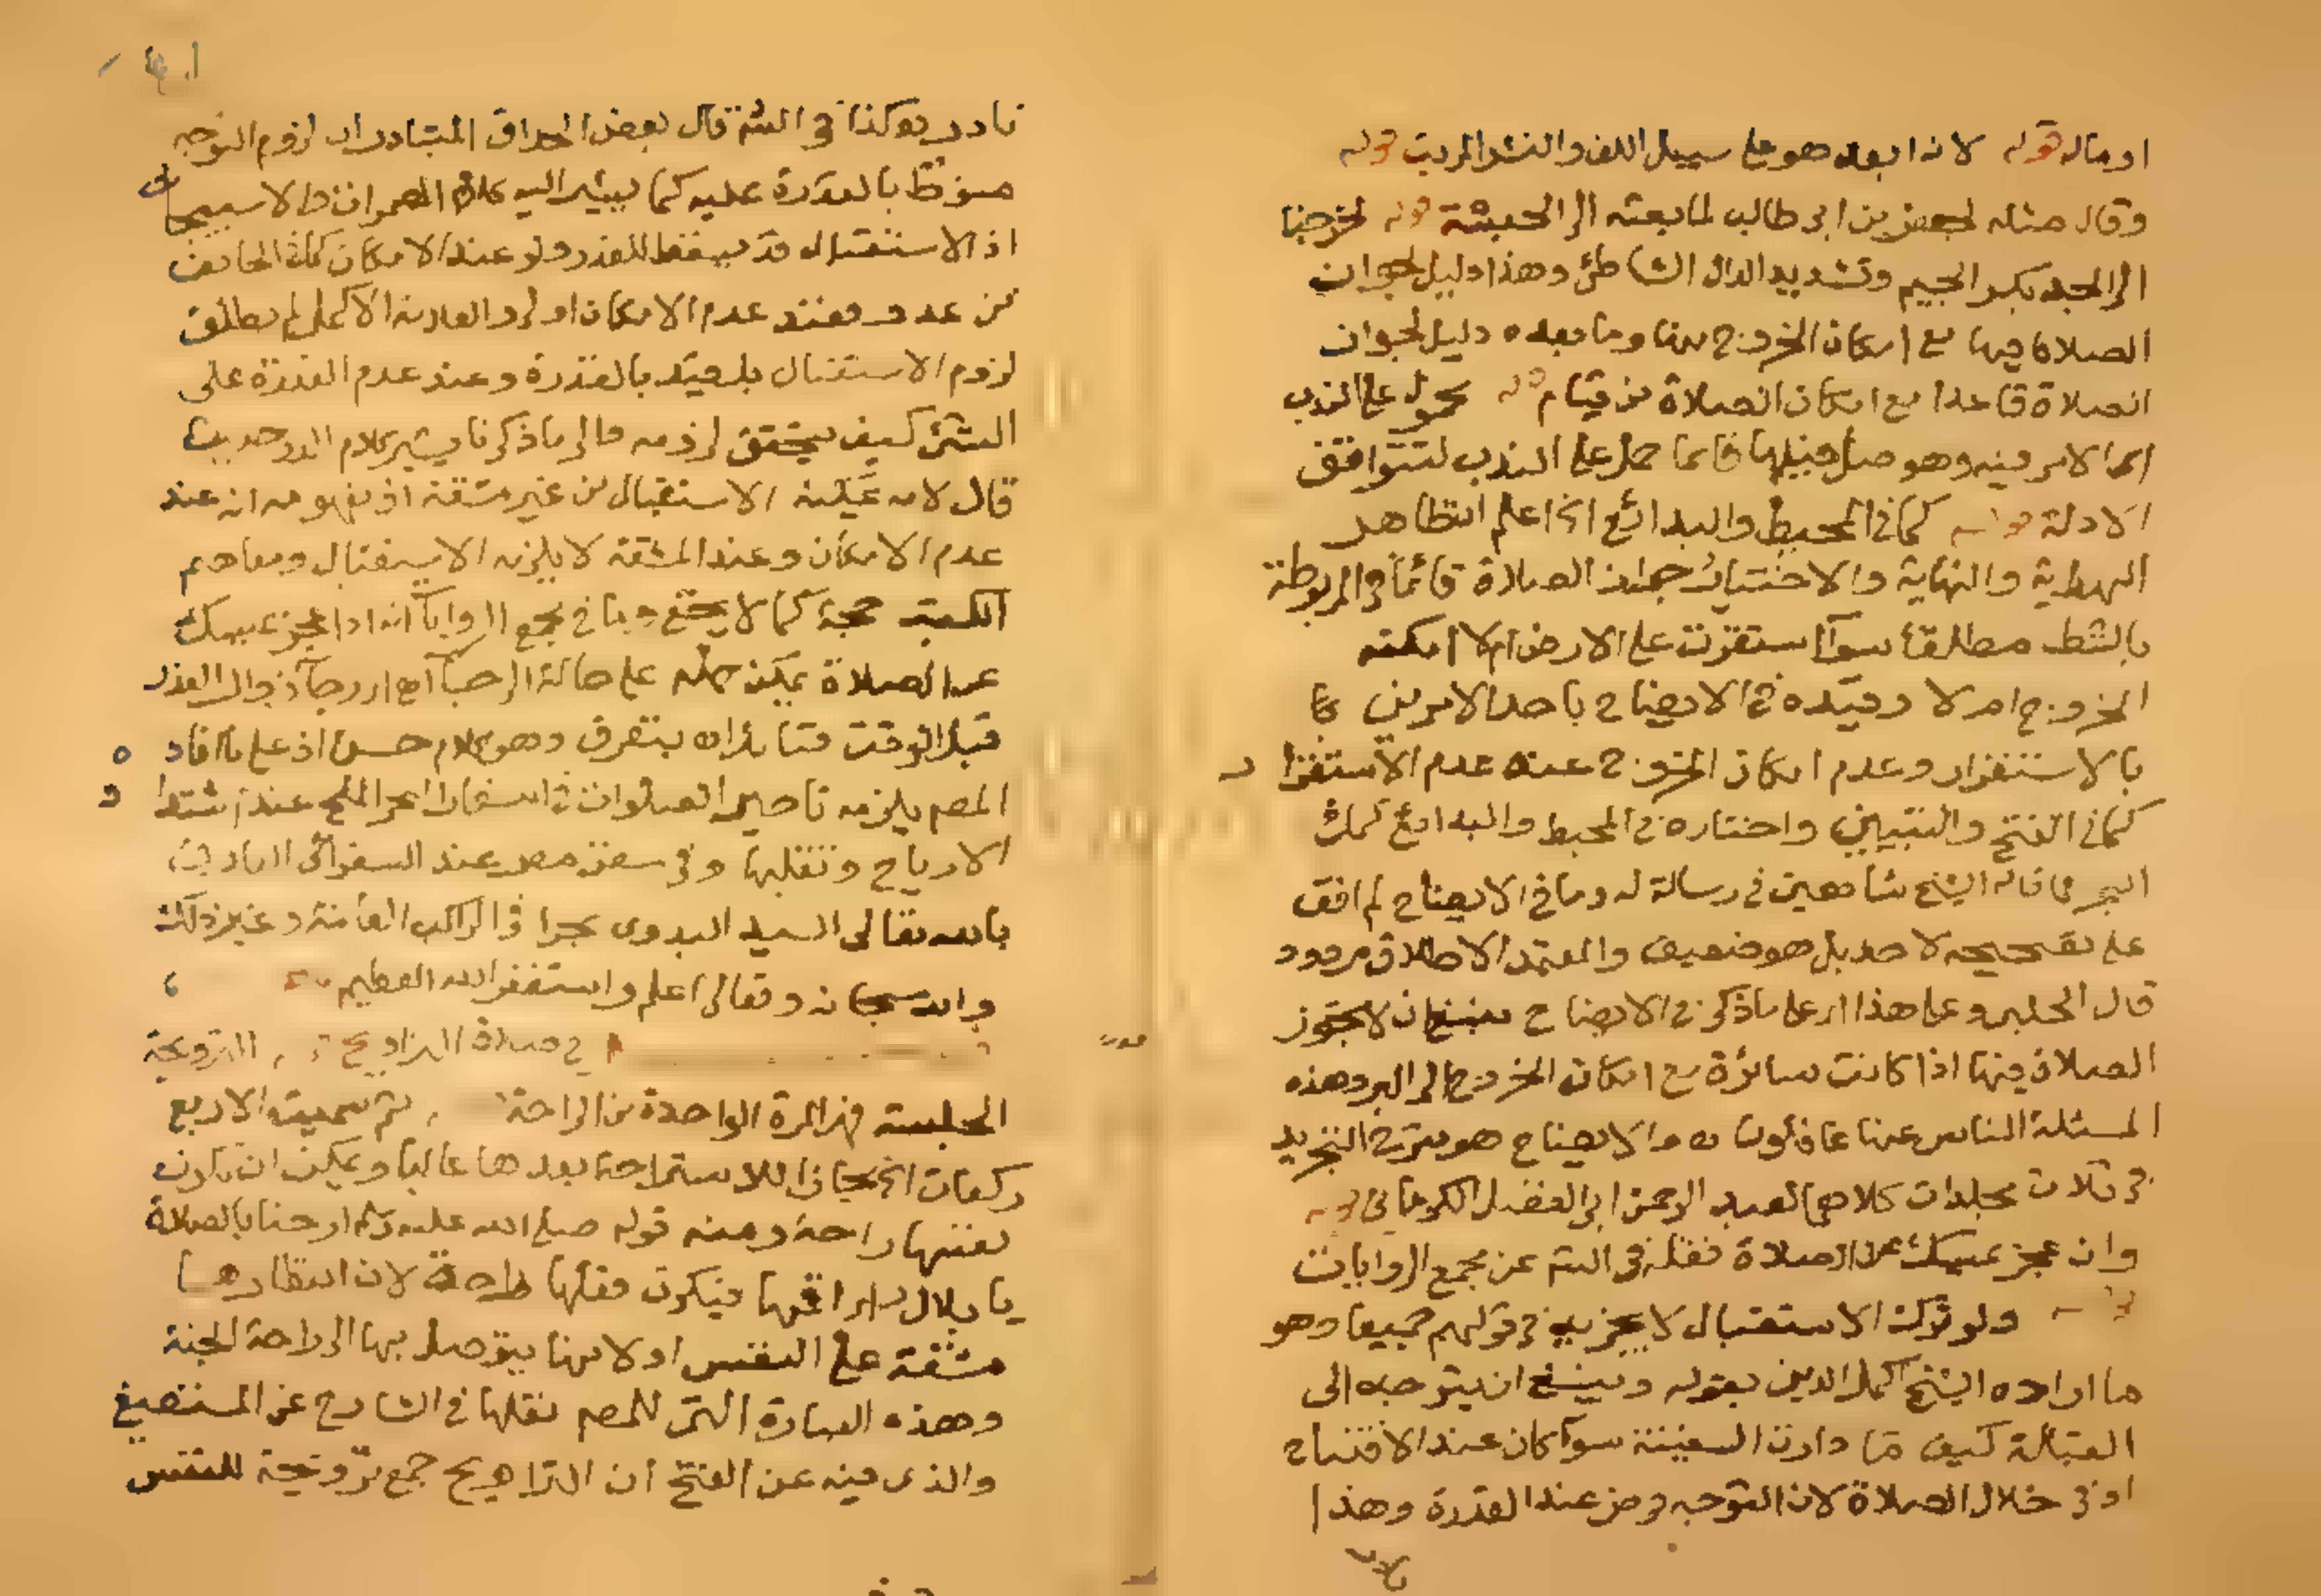 او ماله قوله لانه ابعد هو على سبيل اللف والنشر المرتب قوله
وقال مثله لجعفر بن ابي طالب لما بعثه الى الحبشة قوله لخرجنا
الى الجد بكسر الجيم وتشديد الدال الشاطئ وهذا دليل لجواز
الصلاة فيها مع امكان الخروج منها وما بعده دليل لجواز
الصلاة قاعدا مع امكان الصلاة من قيام قوله محمول على الندب
اي الامر فيه وهو صل فيها قائما حمل على الندب لتتوافق
الادلة قوله كما في المحيط والبدائع اي اعلم ان ظاهر
الهداية والنهاية والاختيار جواز الصلاة قائما في المربوطة
بالشط مطلقا سوآ استقرت على الارض ام لا امكنه
الخروج ام لا وقيده في الايضاح باحد الامرين
بالاستقرار وعدم امكان الخروج عند عدم الاستقرار
كما في الفتح والتبيين واختاره في المحيط والبدائع كما في
البحر قاله الشيخ شاهين في رسالة له وما في الايضاح لم اقف
على تصحيحه لاحد بل هو ضعيف والمعتمد الاطلاق مردود
قال الحلبي وعلى هذا اي على ما ذكر في الايضاح ينبغي ان لا تجوز
الصلاة فيها اذا كانت سائرة مع امكان الخروج الى البر وهذه
المسئلة الناس عنها غافلون والايضاح هو شرح التجريد
في ثلاث مجلدات كلاهما لعبد الرحمن ابي الفضل الكرماني قوله
وان عجز يمسك عن الصلاة نقله في الشرح عن مجمع الروايات
قوله ولو ترك الاستقبال لا يجزيه في قولهم جميعا وهو
ما اراده الشيخ اكمل الدين بقوله وينبغي ان يتوجه الى
القبلة كيف ما دارت السفينة سوآ كان عند الافتتاح
او في خلال الصلاة لان التوجه فرض عند القدرة وهذا
قادر وكذا في الشرح قال بعض الحذاق المتبادر ان لزوم التوجه
منوط بالقدرة عليه كما يشير اليه كلام المضمرات والاسبيجاب
اذ الاستقبال قد يسقط للعذر ولو عند الامكان كما في الخائف
من عدو فعند عدم الامكان اولى والعلامة الاكمل لم يطلق
لزوم الاستقبال بل قيد بالقدرة وعند عدم القدرة على
الشئ كيف يتحقق لزومه والى ما ذكرنا يشير كلام الدرر حيث
قال لانه يمكنه الاستقبال من غير مشقة اذ مفهومه انه عند
عدم الامكان وعند المشقة لا يلزمه الاستقبال ومفاهيم
الكتب حجة كما لا يخفى وما في مجمع الروايآت انه اذا عجز يمسك
عن الصلاة يمكن حمله على حالة الرجآ اي رجآ زوال العذر
قبل الوقت فتأمل اه بتصرف وهو كلام حسن اذ على ما افاده
المص يلزمه تاخير الصلوات في اسفار البحر الملح عند اشتداد
الارياح وتقلبها وفي سفن مصر عند السفر الى العارف
بالله تعالى السيد البدوي بحرا في المراكب الغامنة وغير ذلك
والله سبحانه وتعالى اعلم واستغفر الله العظيم
في صلاة التراويح قوله الترويحة
الجلسة فهي المرة الواحدة من الراحة ثم سميت الاربع
ركعات اي مجازا للاستراحة بعدها غالبا ويمكن ان تكون
نفسها راحة ومنه قوله صلى الله عليه وسلم ارحنا بالصلاة
يا بلال اي اقمها فيكون فعلها راحة لان انتظارها
مشقة على النفس او لانها يتوصل بها الى راحة الجنة
وهذه العبارة التي للمص نقلها في الشارح عن المستصفى
والذي فيه عن الفتح ان التراويح جمع ترويحة للنفس